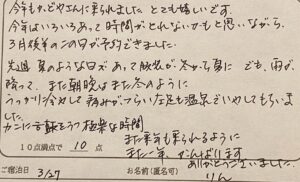 今年もかどやさんに来られました とても嬉しいです。
今年はいろいろあって時間がとれないかもと思いながら、
3月後半のこの日が予約できました。
先週 夏のような日があって 冬から 夏に でも、雨が
降って、また朝晩はまだ冬のように
うっかり冷やして 痛みがつらい左足も温泉でいやしてもらいました。
カニに舌鼓をうつ 極楽な時間
10点満点で 10 点
また来年も来られるように
また一年、がんばります
ありがとうございました。
ご宿泊日 3/27
お名前(匿名可) りん